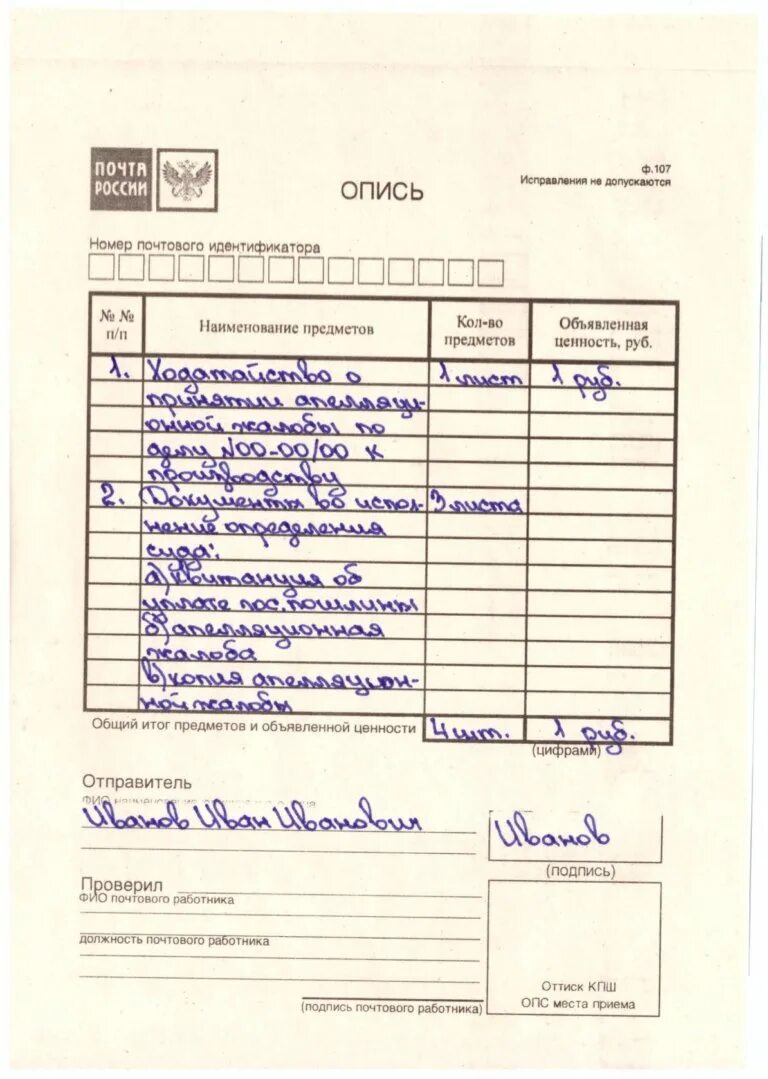 ПОЧТА
РОССИИ
ОПИСЬ
ф.107
Исправления не допускаются
Номер почтового идентификатора
№ № п/п Наименование предметов Кол-во предметов Объявленная ценность, руб.
1. Ходатайство о 1 лист 1 руб.
принятии апелляци-
онной жалобы по
делу №00-00/00 к
производству
2. Документы во испол- 3 листа
нение определения
суда:
а) квитанция об
уплате гос. пошлины
б) апелляционная
жалоба
в) копия апелляцион-
ной жалобы
Общий итог предметов и объявленной ценности 4 шт. 1 руб.
(цифрами)
Отправитель
Иванов Иван Иванович
Иванов
(подпись)
Проверил
ФИО почтового работника
должность почтового работника
(подпись почтового работника)
Оттиск КПШ
ОПС места приема